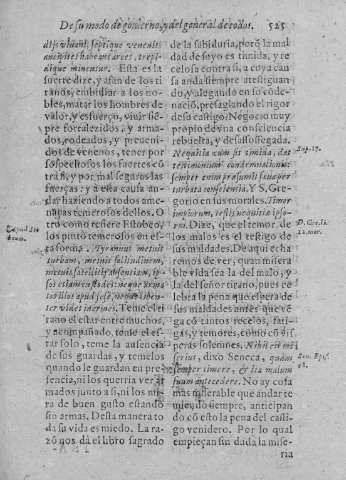 De su modo de gouierno, y del general de todos. 525
ditis viuunt, septique venenis
ancipites habent arces, trepi-
dique minentur. Esta es la
suerte dize, y afan de los ti
ranos, embidiar a los no-
bles, matar los hombres de
valor, y esfuerço, viuir siẽ-
pre fortalezidos, y arma-
dos, rodeados, y preueni-
dos de venenos, tener por
sospechosos los fuertes cõ
trañ, y por mal seguros las
fuerças: y a esta causa anda
haziendo a todos ame-
nazas temerosos dellos. O
tro como refiere Estobeo,
los pintò temerosos en es-
ta forma. Tyrannus metuit
turbam, metuit solitudinem,
metuit satellitij absentiam, ip-
sos etiam custodes: neque arma
tos illos apud se, neque liben-
ter videt inermes. Teme el ti
rano el estar entre muchos,
y acompañado, teme el es-
tar solo, teme la ausencia
de sus guardas, y temelos
quando le guardan en pre-
sencia, ni los querria ver ar
mados junto a si, ni los mi-
ra de buen gusto estando
sin armas. Desta manera to
da su vida es miedo. La ra-
zõ nos dà el libro sagrado
de la sabiduria, porq̃ la mal
dad de suyo es timida, y re
celosa contra si, a coya cau
sa anda siempre atestiguan-
do, y alegando en su cõde-
nacion, presagiando el rigor
de su castigo. Negocio muy
propio de vna consciencia
rebuelta, y desassossegada.
Nequitia cum sit timida, dat
testimonium condemnationis:
semper enim præsumit sæua per
turbata conscientia. Y S. Gre-
gorio en sus morales. Timor
impiorum, testis nequitiæ ipso-
rum. Dize, que el temor de
los malos es el testigo de
sus maldades. De aqui echa
remos de ver, quan misera
ble vida sea la del malo, y
la del señor tirano, pues ce
lebra la pena que espera de
sus maldades antes que vẽ
ga cõ tantos recelos, fati-
gas, y temores, como cõ vis
peras solennes. Nihil est mi
serius, dixo Seneca, quam
semper timere, & ita malum
suum antecedere. No ay cosa
mas miserable que andar te
miendo siempre, anticipan
do cõ esto la pena del casti-
go venidero. Por lo qual
empieçan sin duda la mise-
ria
Sap. 17.
D. Gre. li.